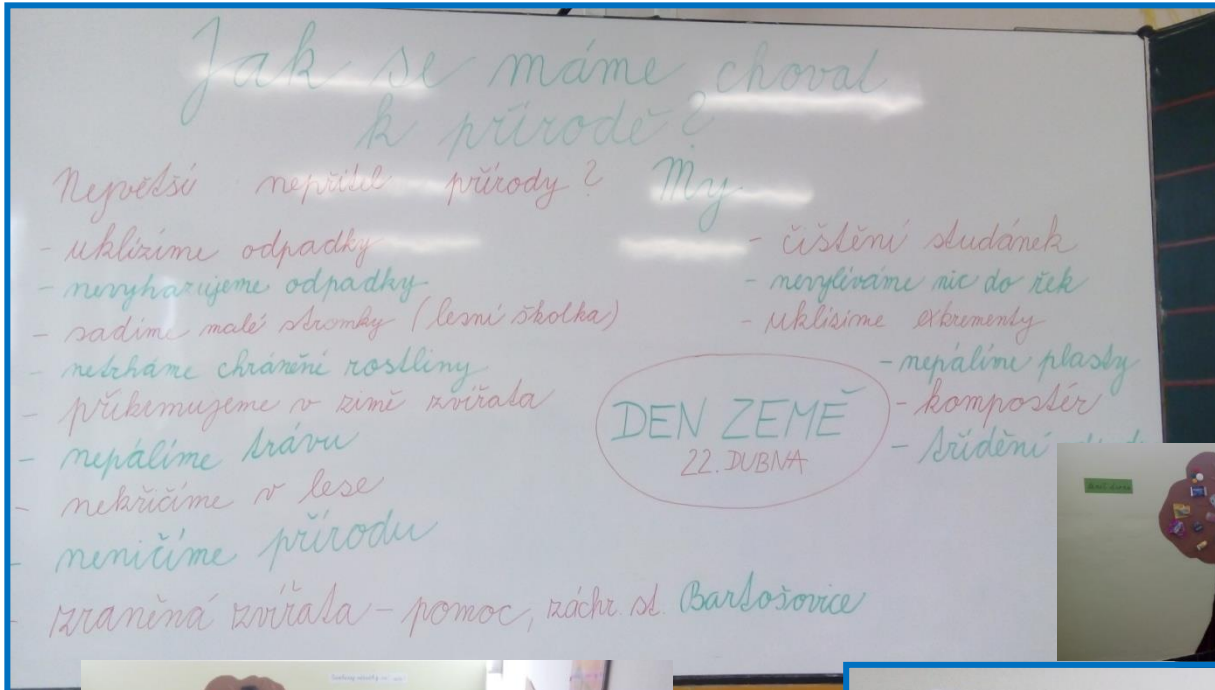 Jak se máme chovat
k přírodě?
Největší nepřítel přírody? My
- uklízíme odpadky
- nevyhazujeme odpadky
- sadíme malé stromky (lesní školka)
- netrháme chránění rostliny
- přikrmujeme v zimě zvířata
- nepálíme trávu
- nekřičíme v lese
- neničíme přírodu
- zraněná zvířata - pomoc, záchr. st. Bartošovice
- čištění studánek
- nevyléváme nic do řek
- uklízíme exkrementy
- nepálíme plasty
- kompostér
- třídění
DEN ZEMĚ
22. DUBNA